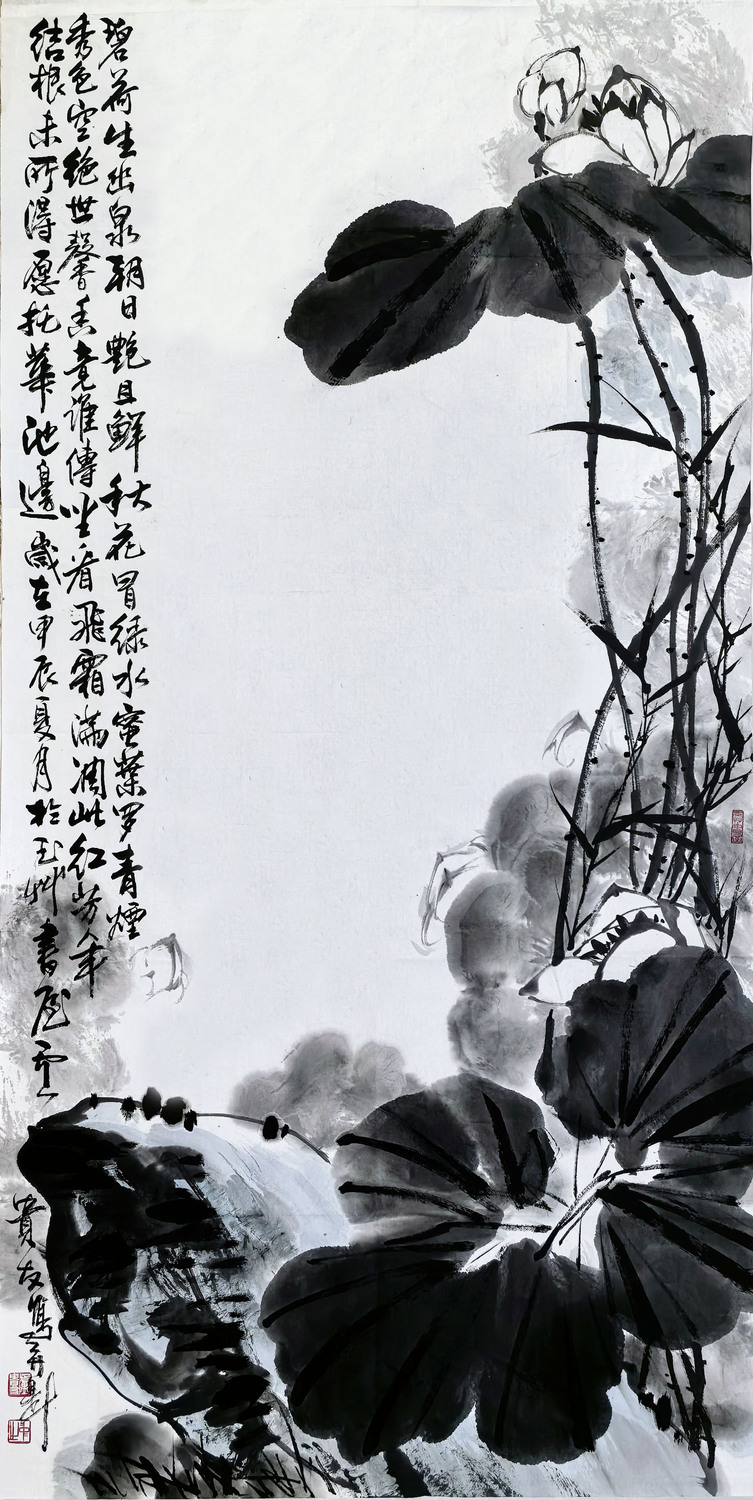 碧荷生幽泉朝日艷且鮮秋花冒绿水蜜葉罗青煙
秀色空绝世馨香竟谁傳坐看飛霜满凋此红芳年
结根未所得愿托華池邊歲在甲辰夏月於玉州書屋
貴友寫并